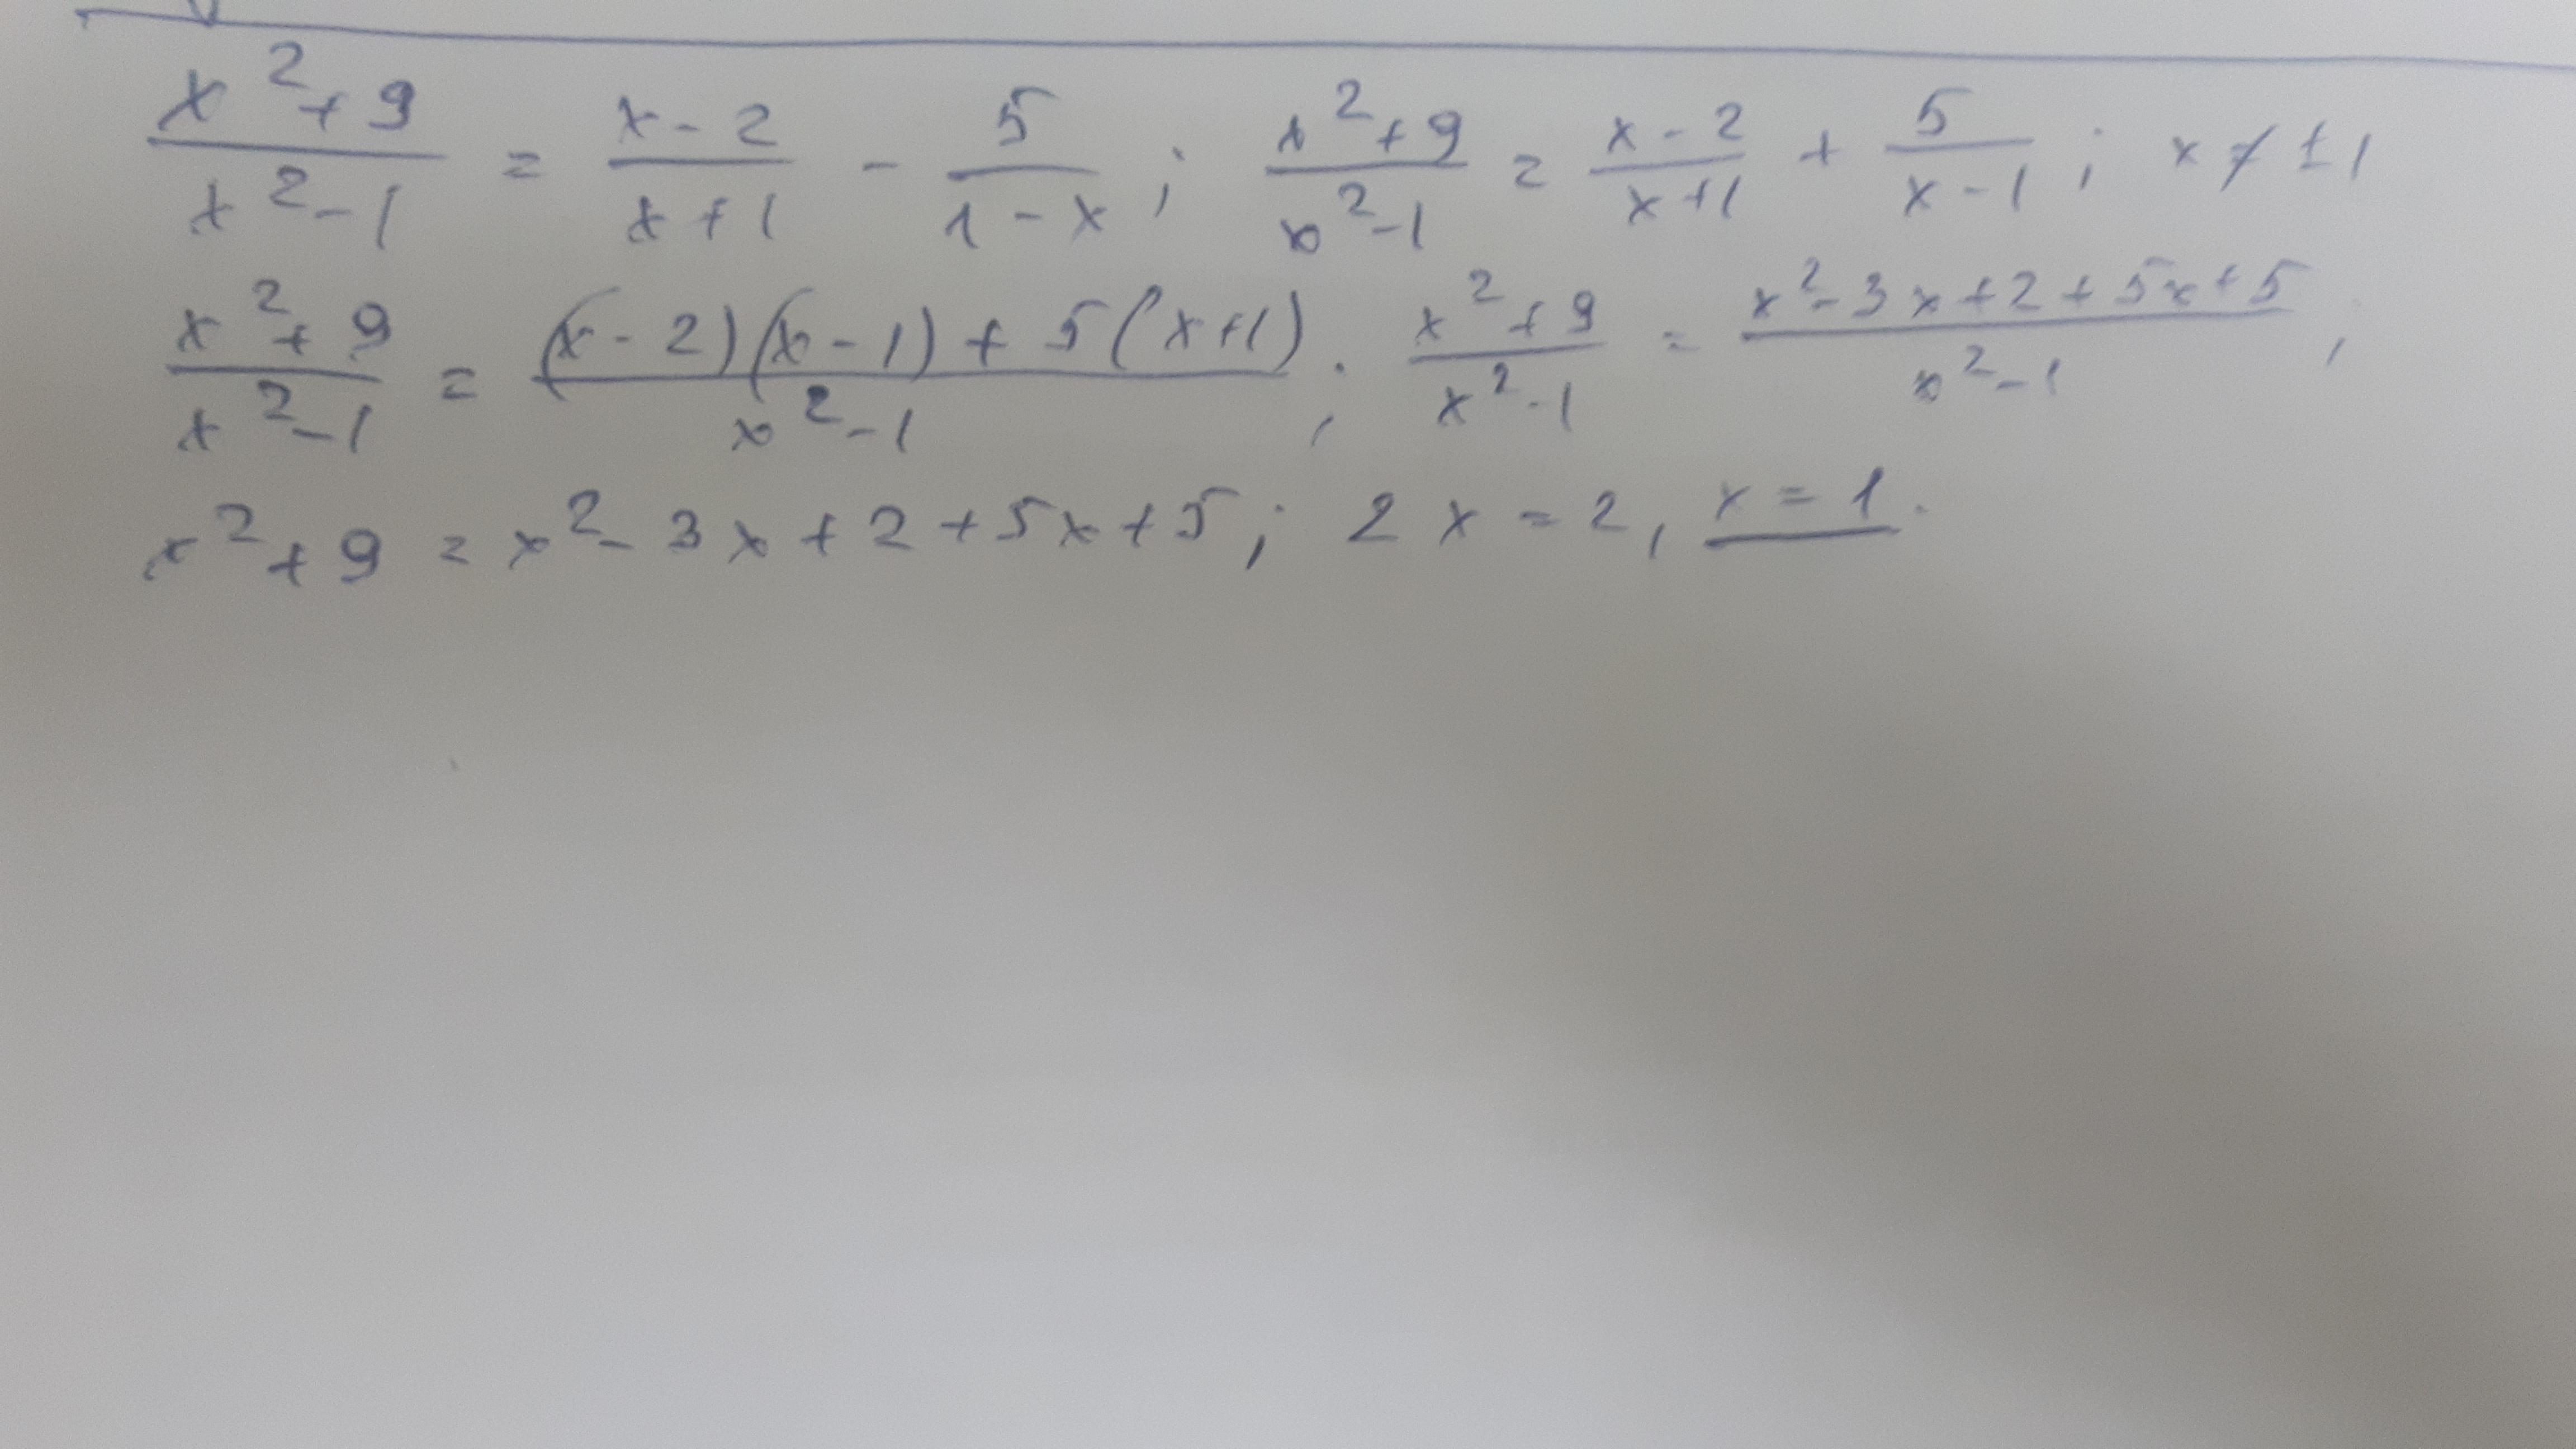 (x²+9)/(x²-1) = (x-2)/(x+1) - 5/(1-x); (x²+9)/(x²-1) = (x-2)/(x+1) + 5/(x-1); x ≠ ±1
(x²+9)/(x²-1) = ((x-2)(x-1)+5(x+1))/(x²-1); (x²+9)/(x²-1) = (x²-3x+2+5x+5)/(x²-1);
x²+9 = x²-3x+2+5x+5; 2x=2, x=1.